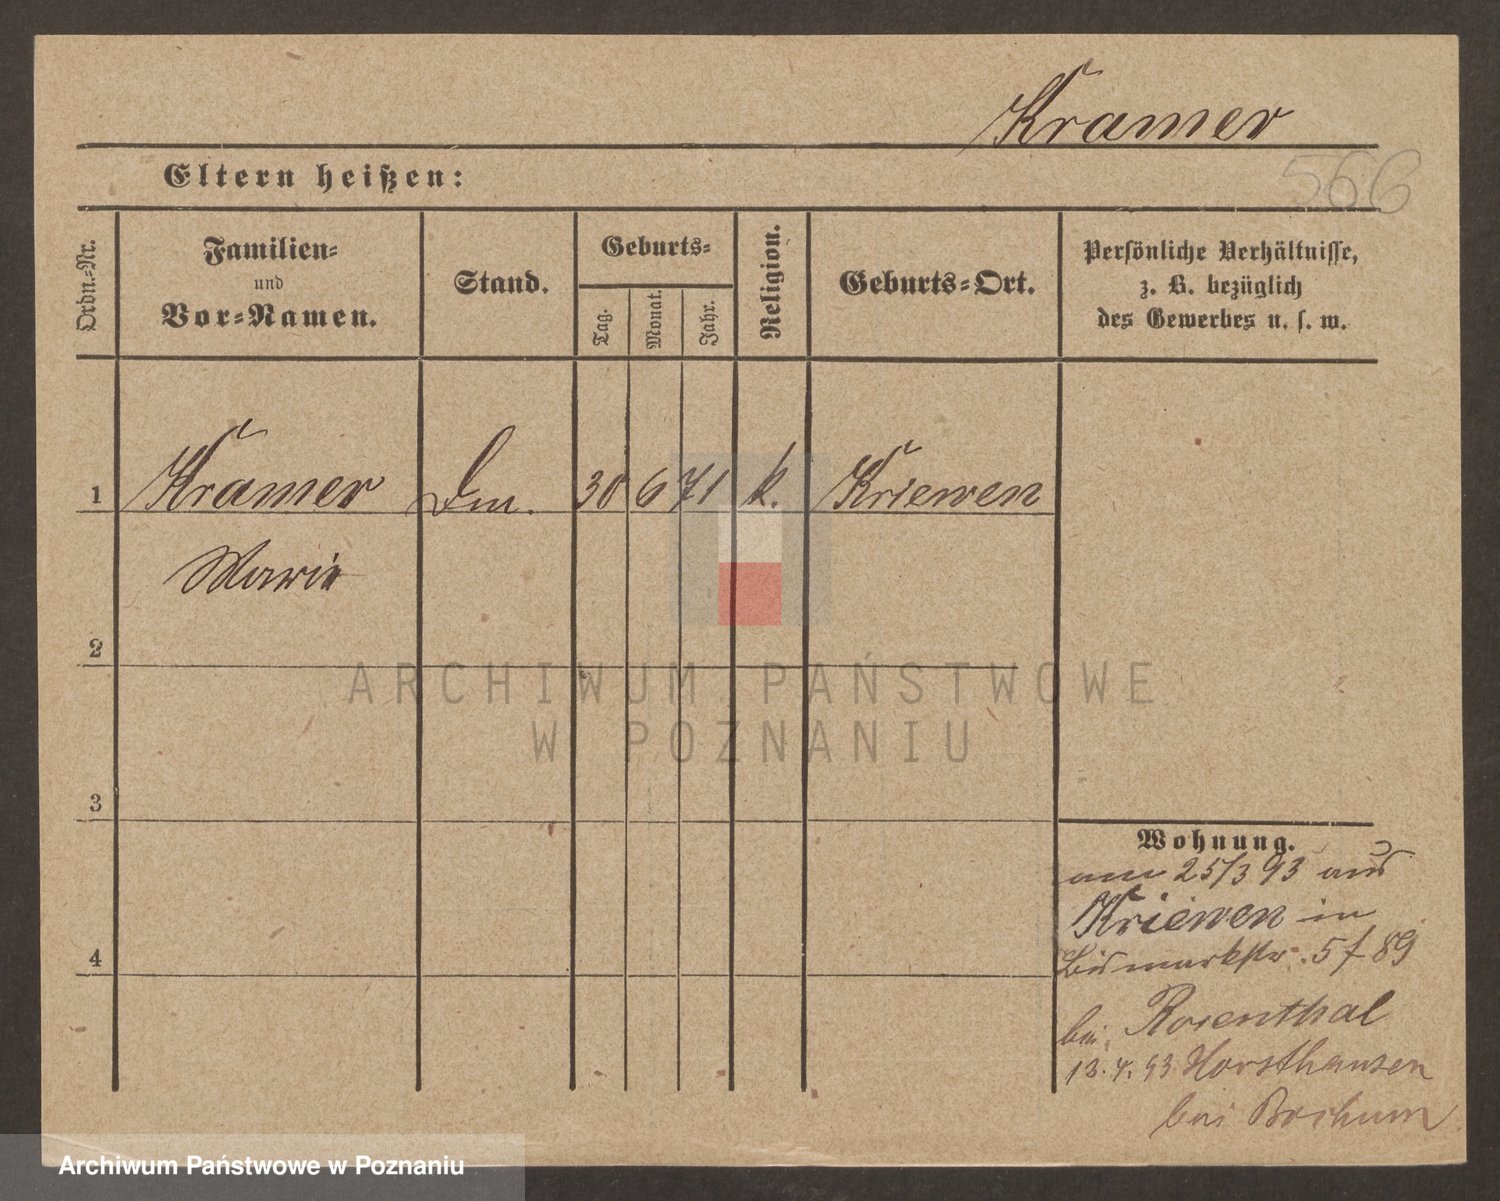 Kramer
566
Eltern heißen:
Ordn.-Nr.
Familien-
und
Vor-Namen.
Stand.
Geburts-
Tag.
Monat.
Jahr.
Religion.
Geburts-Ort.
Persönliche Verhältnisse,
z. B. bezüglich
des Gewerbes u. s. w.
1 Kramer Dm. 30 6 71 k. Kriewen
Marie
2
3
4
Wohnung.
am 25/3 93 aus
Kriewen in
Bismarkstr. 5 f 89
bei Rosenthal
13.4.93 Horsthausen
bei Bochum
ARCHIWUM PAŃSTWOWE
W POZNANIU
Archiwum Państwowe w Poznaniu